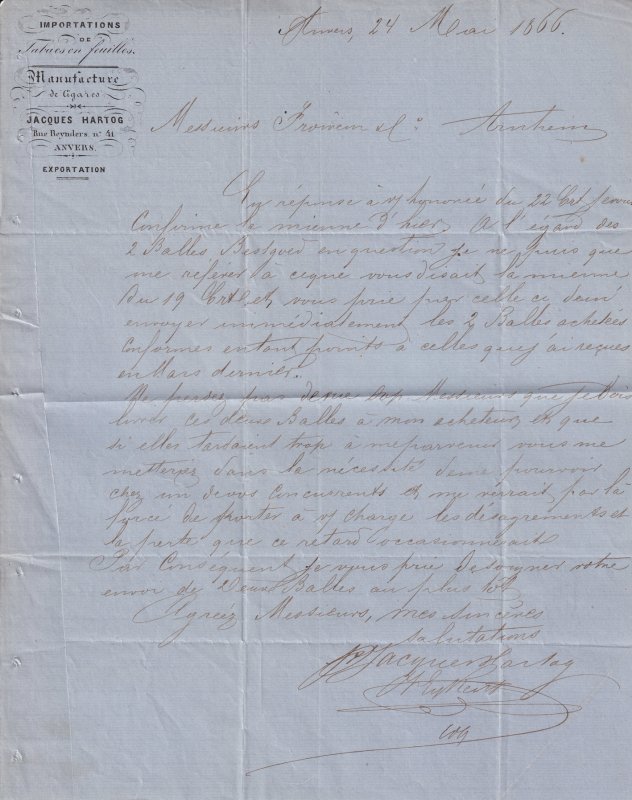 IMPORTATIONS
DE
Tabacs en feuilles.
Manufacture
de Cigares
JACQUES HARTOG
Rue Reynders, nº 41
ANVERS.
EXPORTATION
Anvers, 24 Mai 1866.
Messieurs Frowein & Cº Arnheim
En réponse à v/ honorée du 22 Crt je vous
Confirme la mienne d'hier. A l'égard des
2 Balles Bestgoed en question je ne puis que
me référer à ceque vous disait la mienne
du 19 Crt et vous prie par celle ci dem'
envoyer immédiatement les 2 Balles achetées
Conformes entout points à celles que j'ai reçues
en Mars dernier.
Ne perdez pas de vue Messieurs que je dois
livrer ces deux Balles à mon acheteur et que
si elles tardaient trop à me parvenir vous me
metteriez dans la nécessité deme pourvoir
chez un devos Concurrents et me verrait par là
forcé de porter à v/ charge les desagrements et
la perte que ce retard occasionnerait
Par Conséquent je vous prie desoigner votre
envoi de Deux Balles au plus tôt
Agréez Messieurs, mes sincères
salutations
Jacques Hartog